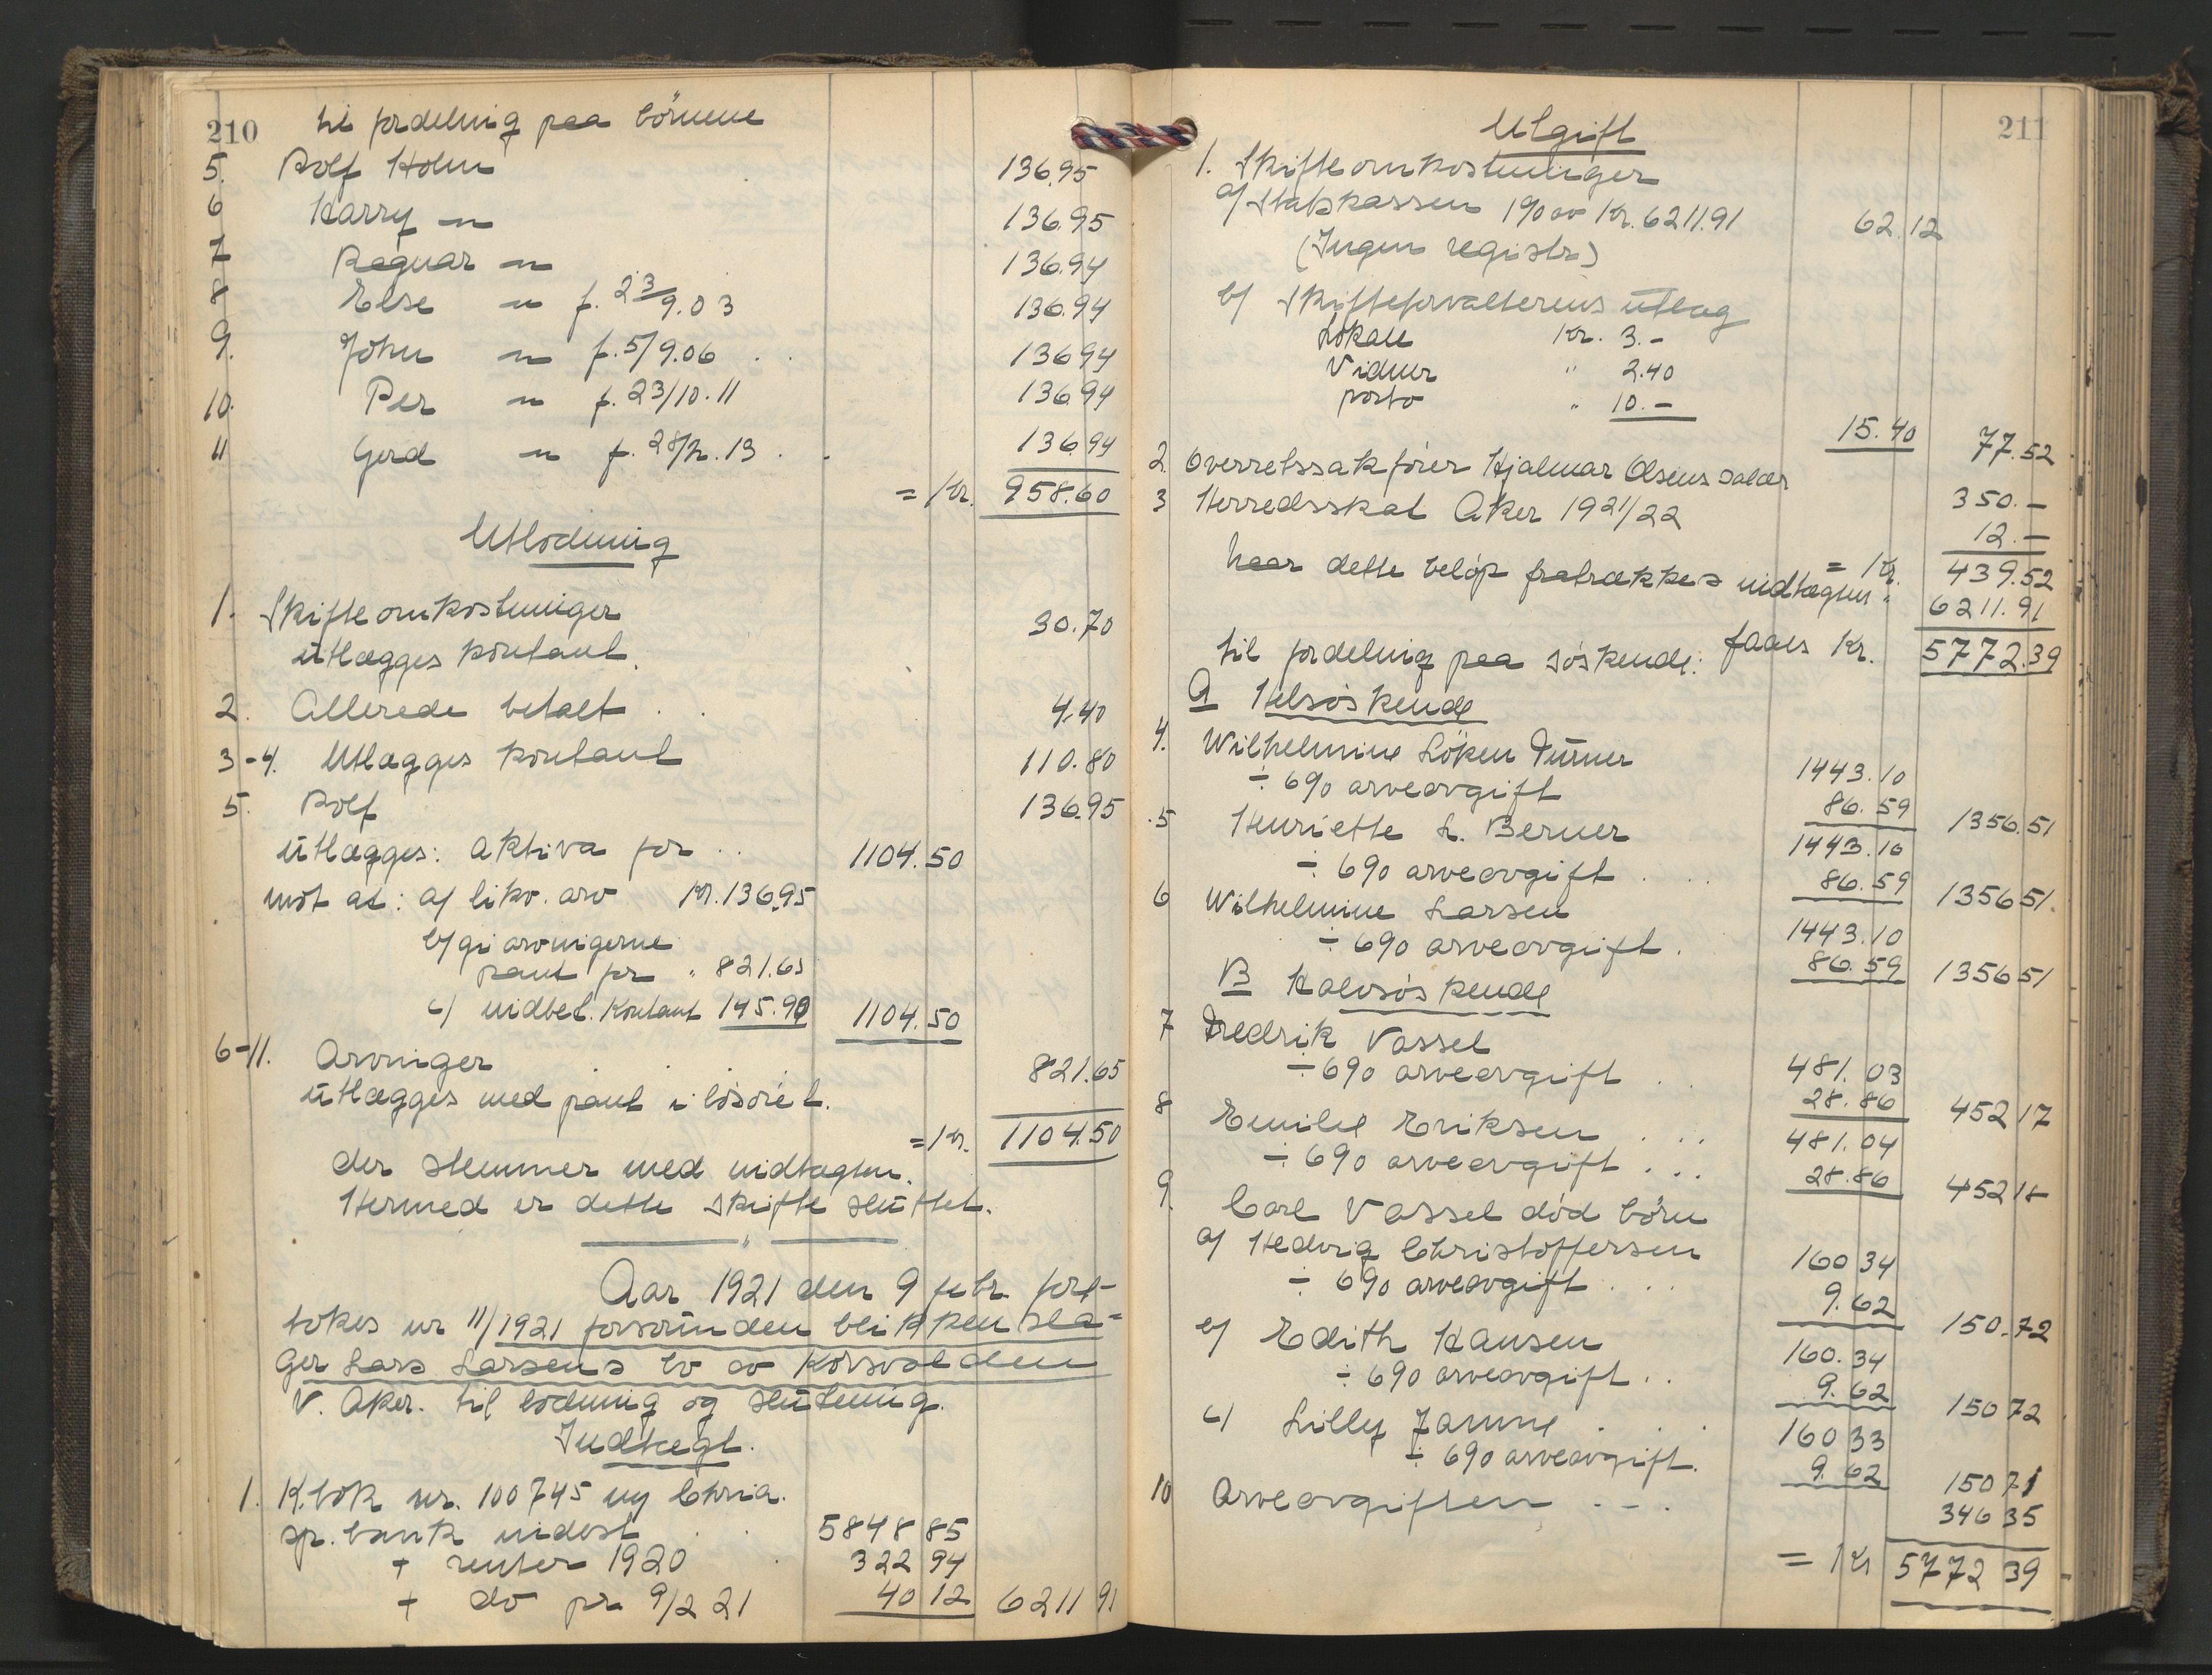 210 til fordeling paa børnene
5. Rolf Holm 136.95
6 Harry — " — 136.95
7 Ragnar — " — 136.94
8 Else — " — f. 23/9.03 136.94
9. John — " — f. 5/9.06 . . 136.94
10. Per — " — f. 23/10.11 136.94
11 Gerd — " — f. 28/2.13 . . 136.94
= Kr. 958.60
Utlodning
1. Skifteomkostninger 30.70
utlægges kontant.
2. Allerede betalt . . 4.40
3-4. Utlægges kontant 110.80
5. Rolf 136.95
utlægges: Aktiva for .. 1104.50
mot at: a/ likv. arv Kr. 136.95
b/ gi arvingerne
pant for " 821.65
c/ indbet. kontant 145.90 1104.50
6-11. Arvinger . . . 821.65
utlægges med pant i løsøret.
= Kr. 1104.50
der stemmer med indtægten.
Hermed er dette skifte sluttet.
Aar 1921 den 9 febr. fore-
tokes nr 11/1921 forsvunden blikkensla=
ger Lars Larsens bo av Korsvolden
V. Aker. til lodning og slutning.
Indtægt.
1. K.bok nr. 100745 ny Chria.
sp. bank indest . . 5848 85
+ renter 1920 . 322 94
+ do pr 9/2 21 40 12 6211 91
211
Utgift
1. Skifteomkostninger
a/ Statskassen 1% av Kr. 6211.91 62.12
(Ingen registr.)
b/ Skifteforvalterens utlæg
Lokale Kr. 3.-
Vidner " 2.40
porto " 10.-
15.40 77.52
2. Overretssakfører Hjalmar Olsens salær 350.-
3 Herredsskat Aker 1921/22 12.-
= Kr. 439.52
naar dette beløp fratrækkes indtægten " 6211.91
faaes Kr. 5772.39
til fordeling paa søskende:
A Helsøskende
4. Wilhelmine Løken Turner 1443.10
÷ 6% arveavgift 86.59 1356.51
5 Henriette L. Berner 1443.10
÷ 6% arveavgift . . . 86.59 1356 51.
6 Wilhelmine Larsen 1443.10
÷ 6% arveavgift . 86.59 1356 51
B Halvsøskende
7 Fredrik Vassel 481.03
÷ 6% arveavgift . . 28.86 452 17
8 Emilie Eriksen . . . 481.04
÷ 6% arveavgift . . . 28.86 452 18
9. Carl Vassel død børn
a/ Hedvig Christoffersen 160 34
÷ 6% arveavgift . . . 9.62 150.72
b/ Edith Hansen 160.34
÷ 6% arveavgift . . 9.62 150 72
c/ Lilly . . . 160 33
÷ 6% arveavgift. 9.62 150 71
10 Arveavgiften . - . 346 35
= Kr 5772 39